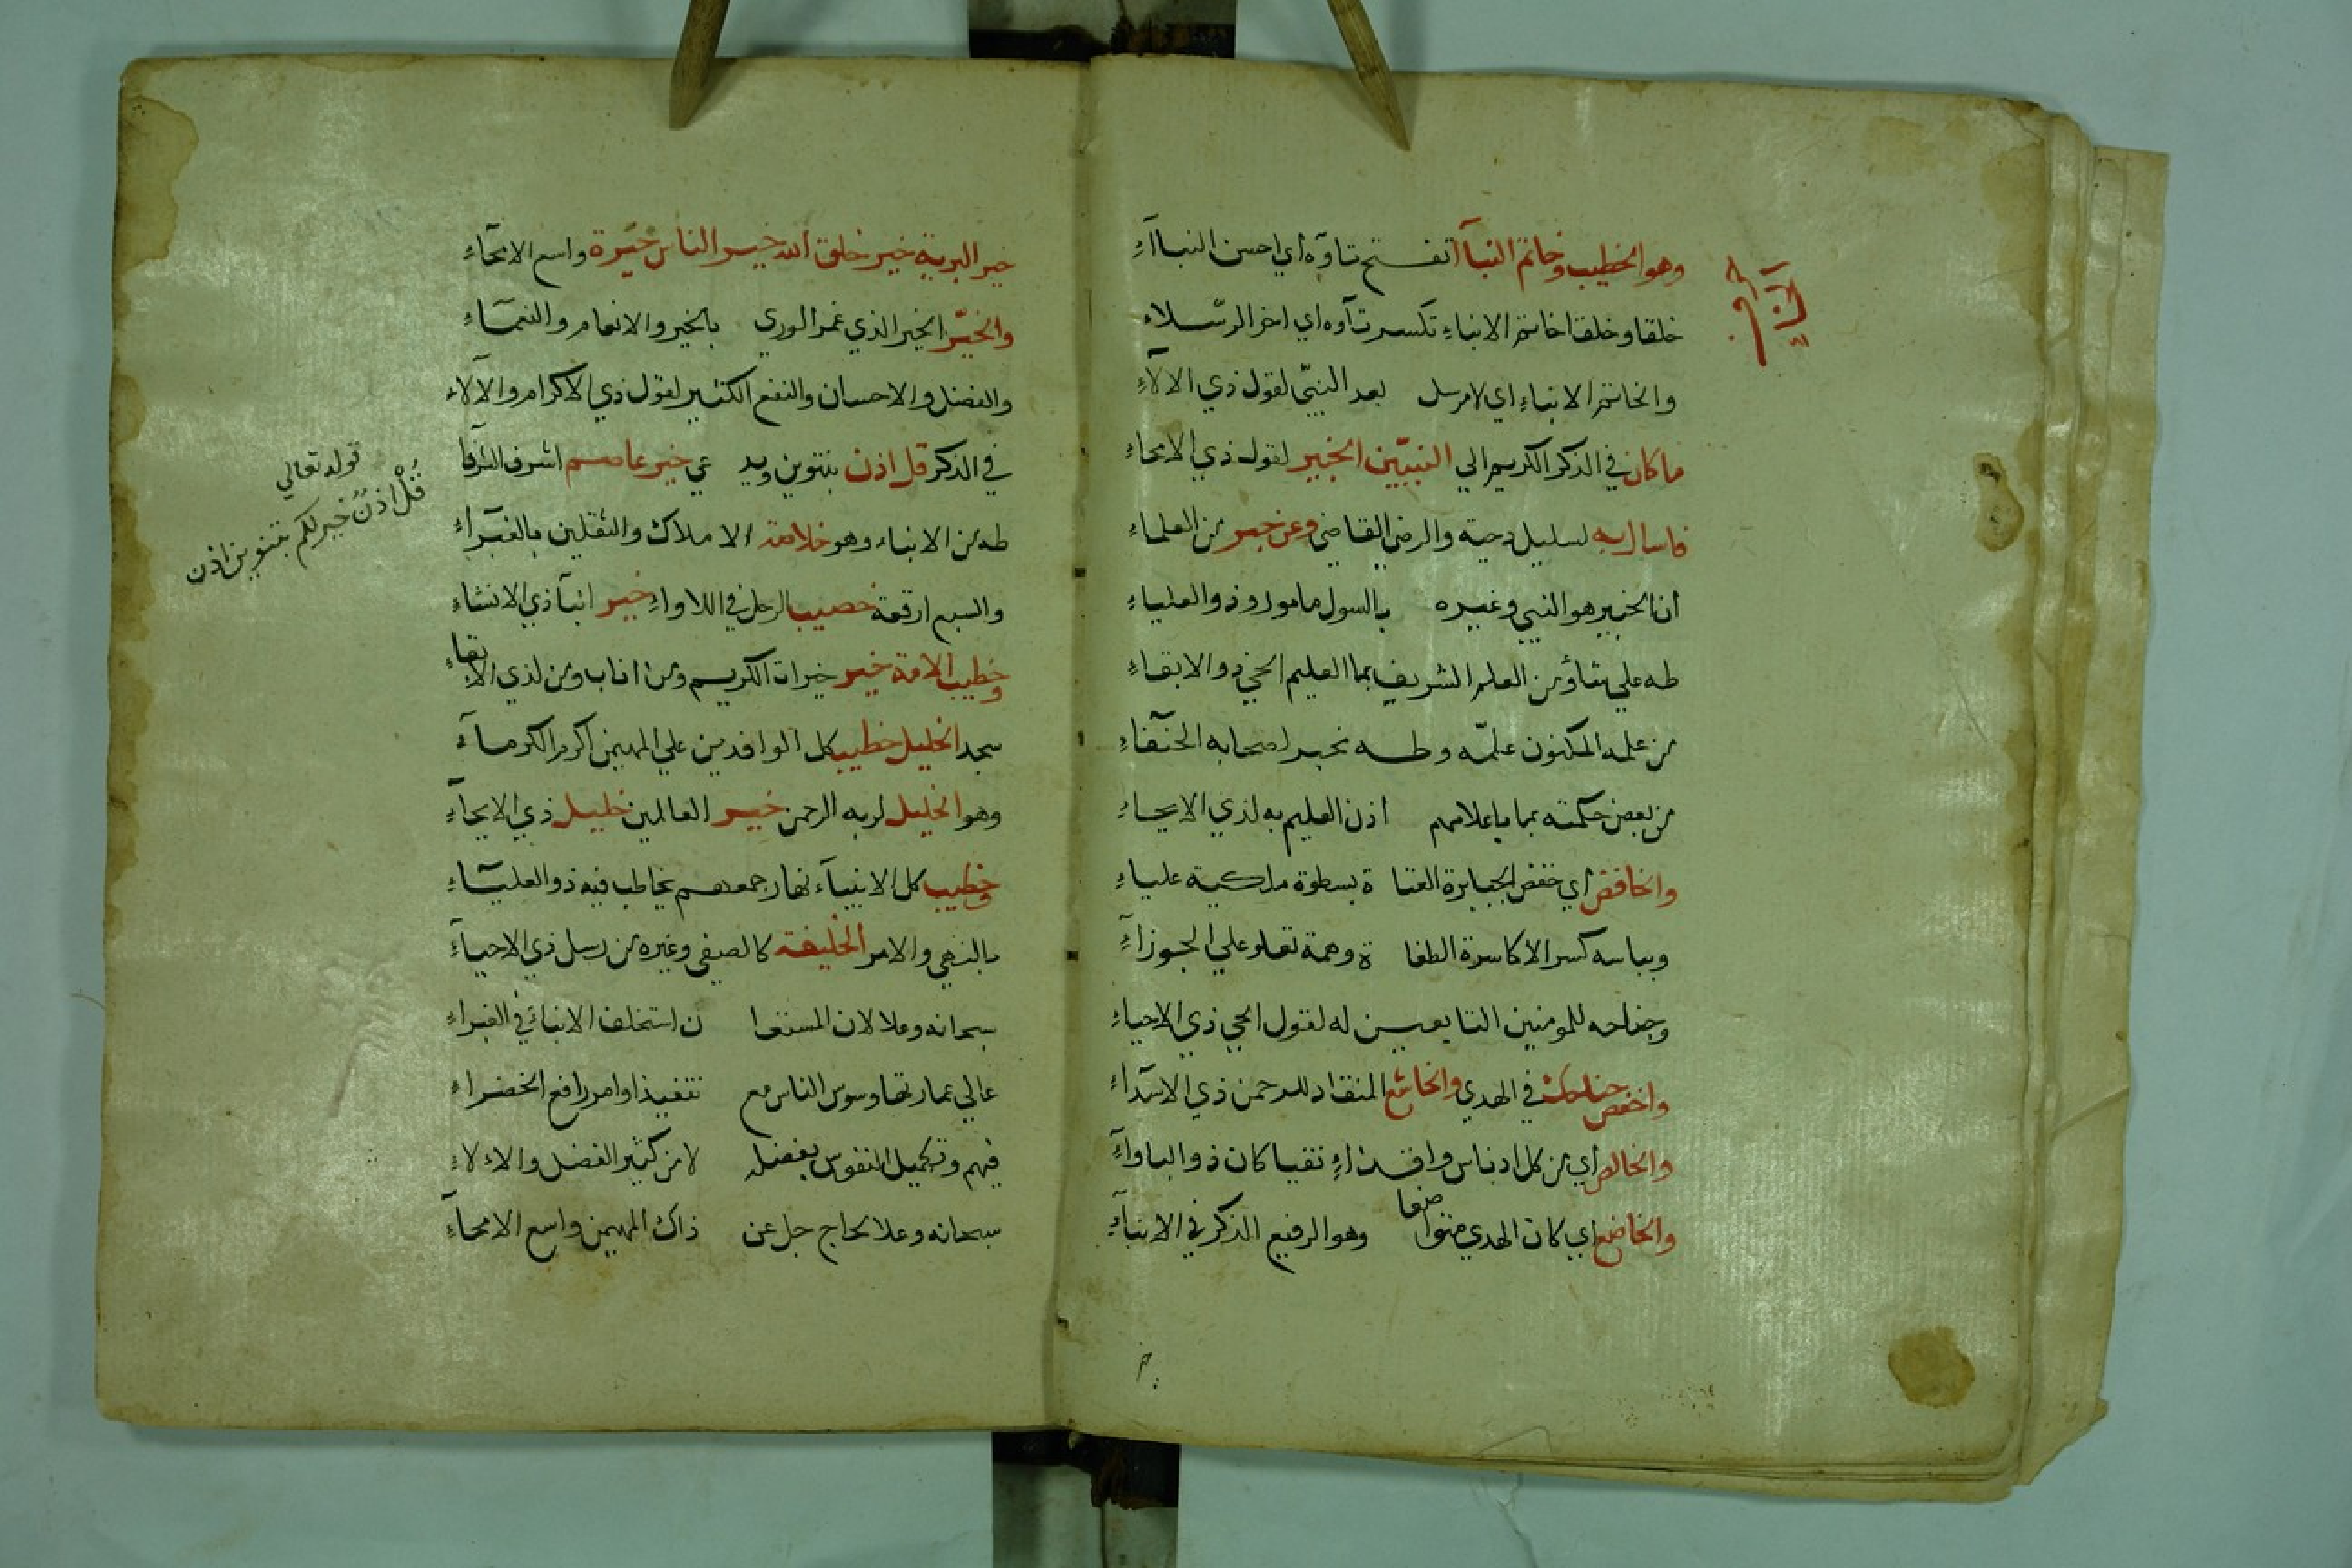 وهو الخطيب وخاتم النبآ اتفتح تاوه اي احسن النباآءِ
خلقا وخلقا خاتم الانباءِ تكسر تآوه اي اخر الرسلاء
والخاتم الانباءِ اي لامرسل بعد النبيّ لقول ذي الالآءِ
ما كان في الذكر الكريم الي النبيّين الخبير لقول ذي الامحاءِ
فاسال به لسليل دحية والرضي القاضي وعن خبر من العلماءِ
ان الخبير هو النبي وغيره بالسول مامور وذو العلياءِ
طه علي من العلم الشريف بما العليم الحي ذو الابقاءِ
من علمه المكنون علمّه وطه مخبر اصحابه الحنفآءِ
من بعض حكمته بما باعلامهم اذن العليم به لذي الايحاءِ
والخافض اي خفض الجبابرة العتا ة بسطوة ملكية علياءِ
وبباسه كسر الاكاسرة الطغا ة وهمة تعلو علي الجوزاءِ
وجناحه للمومنين التابعين له لقول الحي ذي الاحياءِ
واخفض جناحك في الهدي والخاشع المنقاد للرحمن ذي الاسدآءِ
والخالص اي من كل ادناس واقذاءِ نقيا كان ذو الباوآءِ
والخاضع اي كان الهدي متواضعا وهو الرفيع الذكر في الانبآءِ
الآية
خير البرية خير خلق الله خير الناس خيرة واسع الامحآءِ
والخيّر الخير الذي غمر الوري بالخير والانعام والنعمآءِ
والفضل والاحسان والنفع الكثير لقول ذي الاكرام والالاء
في الذكر قل اذن بتنوين ويد عي خير عاصم اشرف الشرفآ
طه من الانباء وهو خلاصة الاملاك والثقلين بالغبرآءِ
والسبع ارقعة خصيب الرحل في اللاواءِ خير انبآ ذي الانشاءِ
وخطيب الامة خير خيرات الكريم ومن اناب ومن لذي الابقاءِ
سجد الخليل خطيب كل الوافدين علي المهيمن اكرم الكرمآءِ
وهو الخليل لربه الرحمن خير العالمين خليل ذي الايحآءِ
وخطيب كل الانبيآء نهار جمعهم يخاطب فيه ذو العليآءِ
بالنهي والامر الخليفة كالصفي وغيره من رسل ذي الاحيآءِ
سبحانه وعلا لان المستعا ن استخلف الانبائ في الغبراءِ
عالي عمارتها وسوس الناس مع تنفيذ اوامر رافع الخضراءِ
فيهم وتكميل النفوس بفضله لا من كثير الفضل والالاءِ
سبحانه وعلا لحاج جل عن ذاك المهيمن واسع الامحآءِ
قوله تعالي
قُلْ اذنٌ خير لكم بتنوين اذن